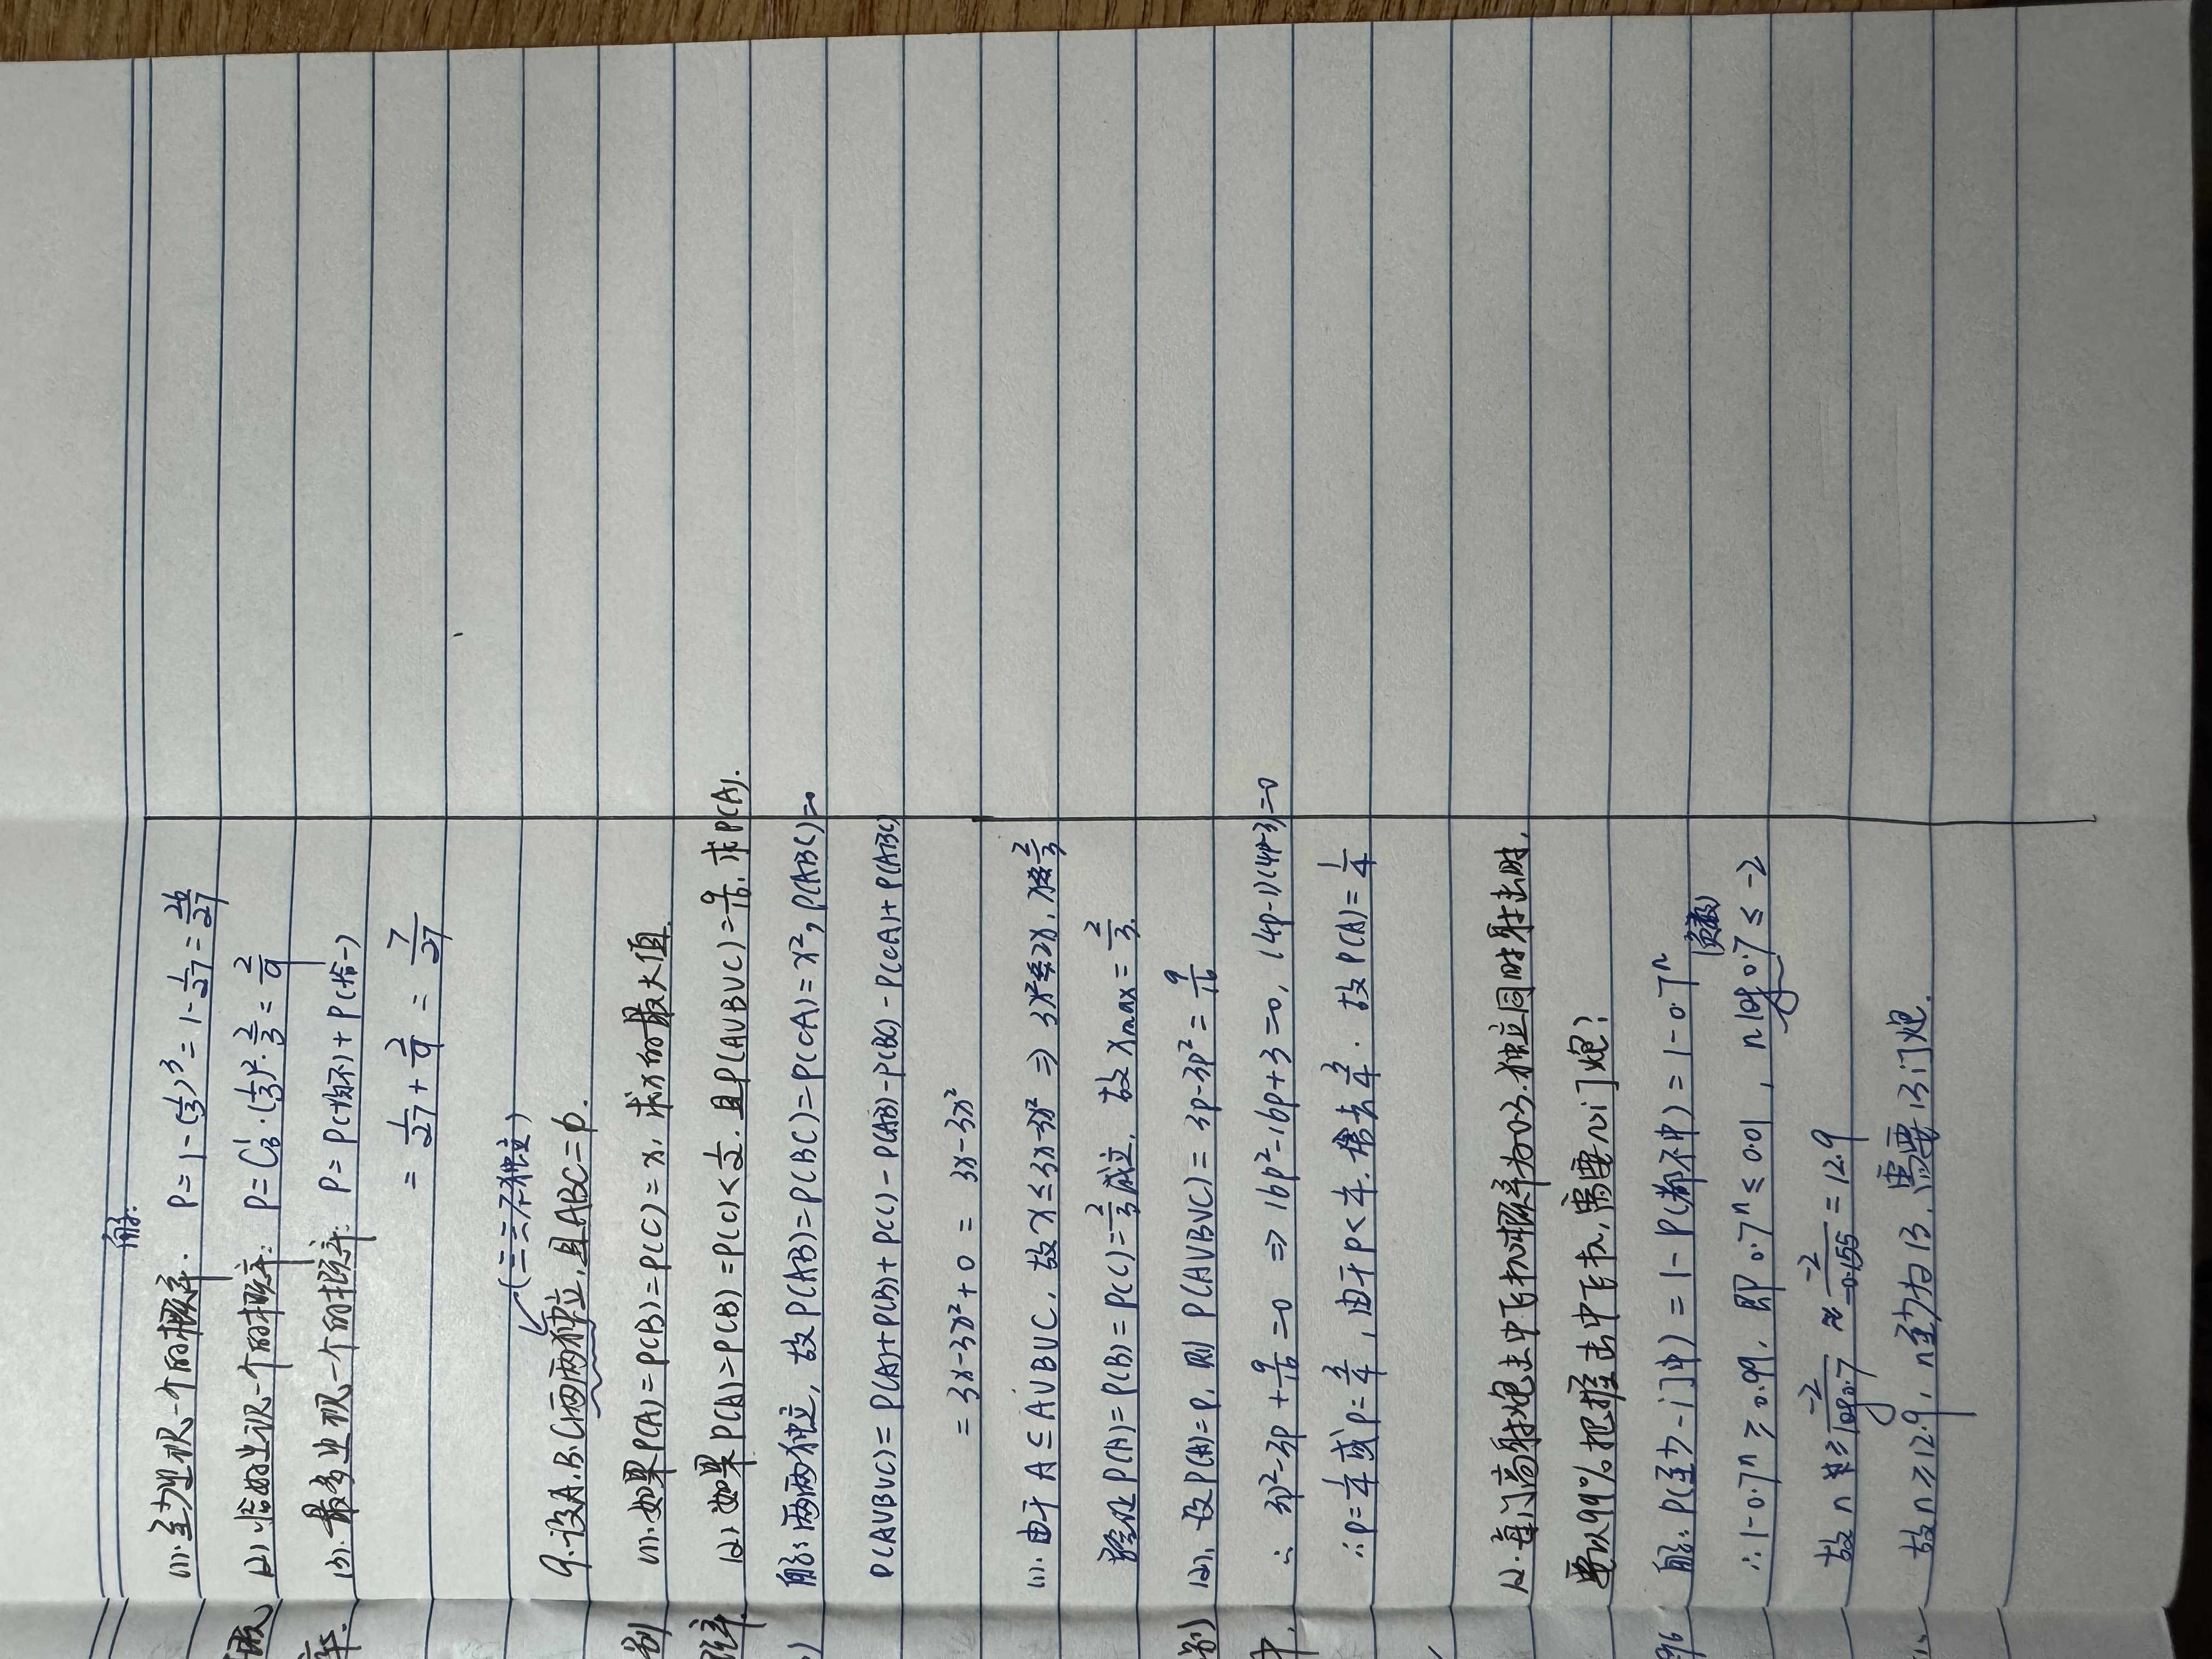 解:
(1).至少出现一个的概率. P=1-(1/3)³=1-1/27=26/27
(2) 恰好出现一个的概率: P=C₃¹·(1/3)²·2/3=2/9
(3).最多出现一个的概率: P=P(均不)+P(恰一)
率.
=1/27+2/9=7/27
(三三不独立)
9.设A.B.C两两独立,且ABC=φ.
别 (1).如果P(A)=P(B)=P(C)=x,求x的最大值.
率. (2)如果P(A)=P(B)=P(C)<1/2.且P(A∪B∪C)=9/16,求P(A).
) 解:两两独立,故P(AB)=P(BC)=P(CA)=x²,P(ABC)=0
P(A∪B∪C)=P(A)+P(B)+P(C)-P(AB)-P(BC)-P(CA)+P(ABC)
=3x-3x²+0=3x-3x²
(1).由于A⊆A∪B∪C,故x≤3x-3x² ⇒ 3x²≤2x,x≤2/3
验证P(A)=P(B)=P(C)=2/3成立,故xmax=2/3.
别) (2),设P(A)=p,则P(A∪B∪C)=3p-3p²=9/16
中. ∴3p²-3p+9/16=0 ⇒16p²-16p+3=0,(4p-1)(4p-3)=0
∴p=1/4或p=3/4,由于p<1/4.舍去3/4.故P(A)=1/4
12.每门高射炮击中飞机概率为0.3.独立同时射击时,
要以99%把握击中飞机,需要几门炮?
96 解:P(至少一门中)=1-P(都不中)=1-0.7ⁿ
(负数)
∴1-0.7ⁿ≥0.99,即0.7ⁿ≤0.01,nlog0.7≤-2
故n≥-2/log0.7≈-2/-0.155=12.9
故n≥12.9,n至少为13.需要13门炮.